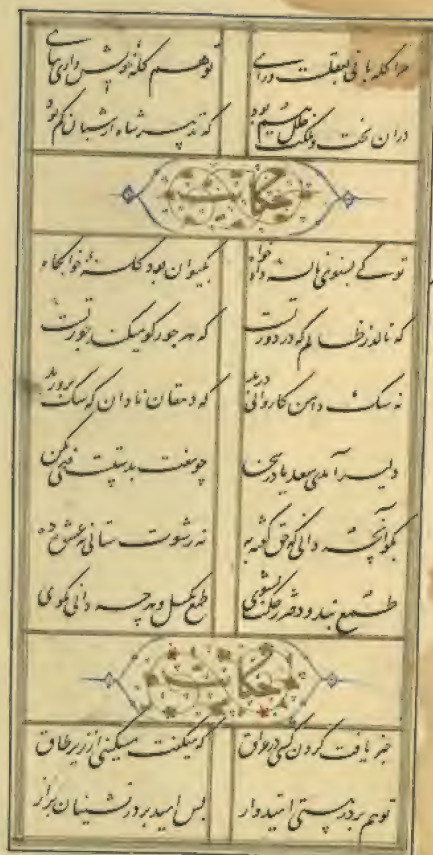 مرا گله بانی بعقلست و رای تو هم گله خویش داری بپای
دران تخت و ملک از خلل غم بود که تدبیر شاه از شبان کم بود
حکایت
تو کی بشنوی نالۀ دادخواه بکیوان بود کلۀ خوابگاه
که نالد ز ظالم که در دور تست که هر جور کو میکند جور تست
نه سک دامن کاروانی درید که دهقان نادان که سک پرورید
دلیر آمدی سعدیا در سخن چو تیغت بدستست فتحی بکن
بکو آنچه دانی که حق گفته به نه رشوت ستانی نه عشوه ده
طمع بند و دفتر ز حکمت بشوی طمع بکسل و هر چه دانی بکوی
حکایت
خبر یافت گردن کشی در عراق که میکفت مسکینی از زیر طاق
تو هم بر دری هستی امیدوار پس امید بر در نشینان برآر